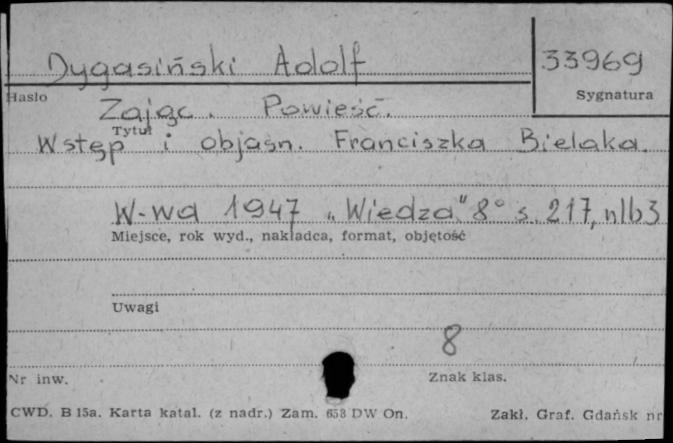 Dygasiński Adolf 33969
Hasło Sygnatura
Zając. Powieść.
Tytuł
Wstęp i objaśn. Franciszka Bielaka.
W-wa 1947 „Wiedza" 8° s. 217, nlb3
Miejsce, rok wyd., nakładca, format, objętość
Uwagi
8
Nr inw. Znak klas.
CWD. B 15a. Karta katal. (z nadr.) Zam. 658 DW On. Zakł. Graf. Gdańsk nr